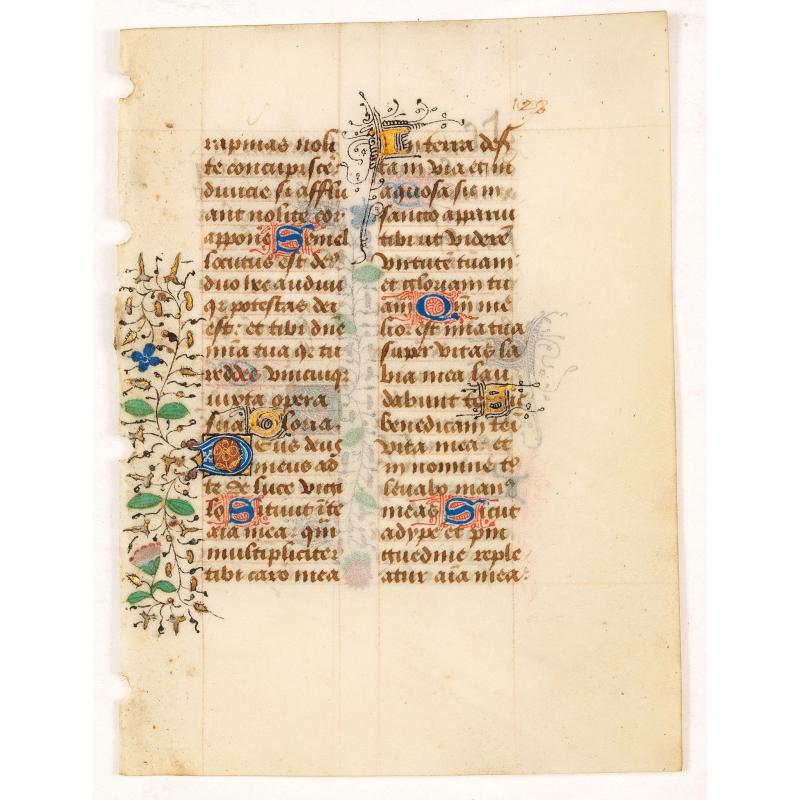 128
rapinas noli
te concupisce
diuicie si afflu
ant nolite cor
appone Semel
locutus est de9
duo hec audiui
qr potestas dei
est: et tibi dne
mia tua qr tu
reddes vnicuiq
iuxta opera
sua Gloria.
Deus deus
meus ad
te de luce vigi
lo Sitiuit i te
aia mea: qm
multipliciter
tibi caro mea
In terra des
ta in via et in
aquosa sic in
sancto apparui
tibi vt videre
virtute tuam
et gloriam tu
am Qm me
lior est mia tua
super vitas la
bia mea lau
dabunt te Sic
benedicam te i
vita mea et
in nomine to
leuabo man9
meas Sicut
adype et pin
guedine reple
atur aia mea